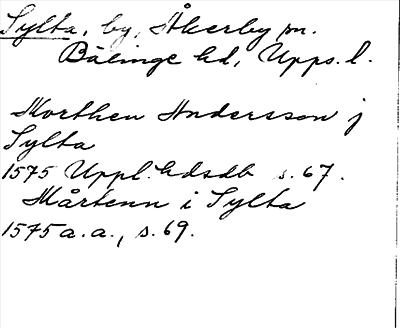 Sylta, by, Åkerby sn.
Bälinge hd, Upps. l.
Morthen Andersson j
Sylta
1575 Uppl. hdsdb s. 67.
Mårtenn i Sylta
1575 a. a., s. 69.